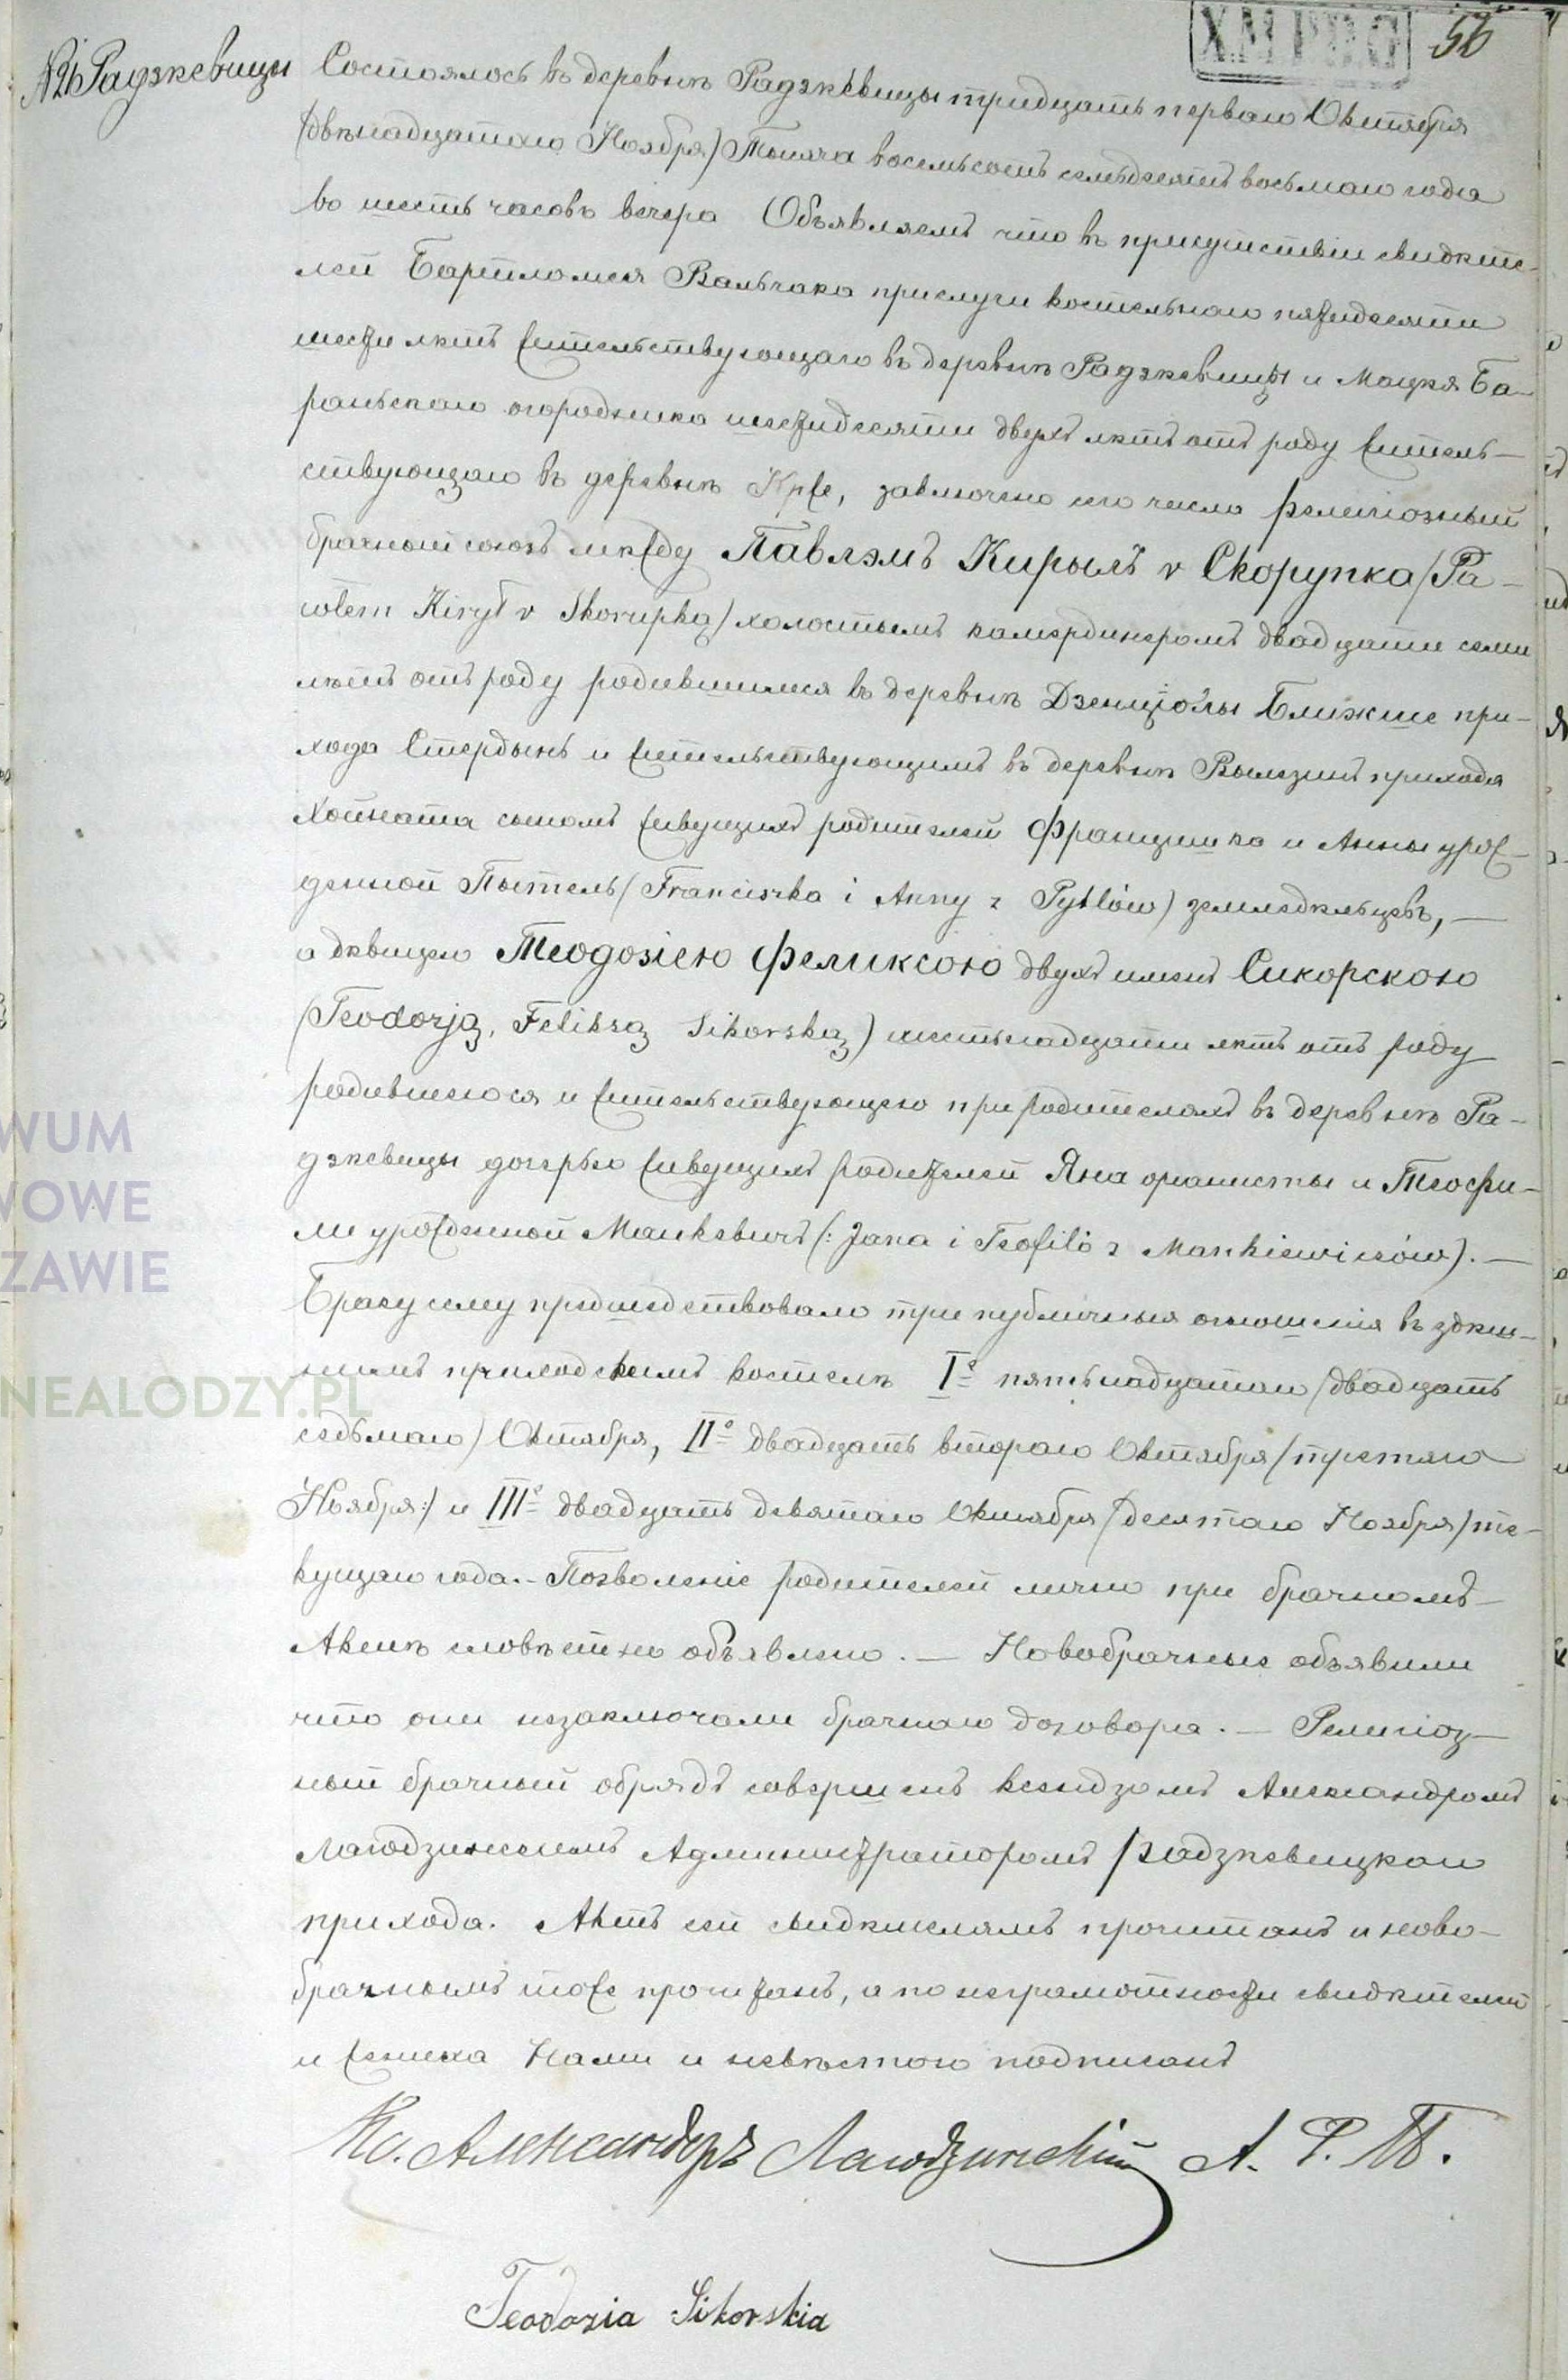 56
№21 Радзкевицы
Состоялось въ деревнѣ Радзкѣвицы тридцать перваго Октября
/двѣнадцатаго Ноября/ Тысяча восемьсотъ семьдесятъ восьмаго года
во шесть часовъ вечера Объявляемъ что въ присутствіи свидѣте-
лей Бартломея Вальчака прислуги костельнаго пятидесяти
шести лѣтъ жительствующаго въ деревнѣ Радзкевицы и Мацѣя Ба-
раньскаго огородника шестидесяти двухъ лѣтъ отъ роду житель-
ствующаго въ деревнѣ Крже, заключено сего числа религіозный
брачный союзъ между Павлэмъ Кирылъ v Скорупка /Pa-
włem Kirył v Skorupką/ холостымъ камердинеромъ двадцати семи
лѣтъ отъ роду родившимся въ деревнѣ Дзенціолы Ближше при-
хода Стердынь и жительствующимъ въ деревнѣ Вылезинъ прихода
Хойната сыномъ живущихъ родителей Францишка и Анны урож-
денной Пытель /Franciszka i Anny z Pytlów/ земледѣльцевъ, —
а дѣвицею Теодозіею Феликсою двухъ именъ Сикорскою
/Teodozją, Feliksą Sikorską/ шестьнадцати лѣтъ отъ роду
родившеюся и жительствующею при родителяхъ въ деревнѣ Ра-
дзкевицы дочерью живущихъ родителей Яна органисты и Теофи-
ли урожденной Манкевичъ /: Jana i Teofili z Mankiewiczów/. —
Браку сему предшедствовало три публичныя оглошенія въ здѣш-
нимъ приходскимъ костелѣ I<sup>е</sup> пятьнадцатаго /двадцать
седьмаго/ Октября, II<sup>е</sup> двадцать втораго Октября /третяго
Ноября:/ и III<sup>е</sup> двадцать девятаго Октября /десятаго Ноября/ те-
кущаго года. — Позволеніе родителей лично при брачномъ —
Актѣ словѣстно объявлено. — Новобрачные объявили
что они незаключали брачнаго договора. — Религіоз-
ный брачный обрядъ совершенъ ксендзомъ Александромъ
Лагодзинскимъ Администраторомъ Радзкевицкаго
прихода. Актъ сей свидѣтелямъ прочитанъ и ново-
брачнымъ тоже прочитанъ, а по неграмотности свидѣтелей
и жениха Нами и невѣстою подписанъ
Кс. Александеръ Лагодзинскій А. Р. П.
Teodozia Sikorskia